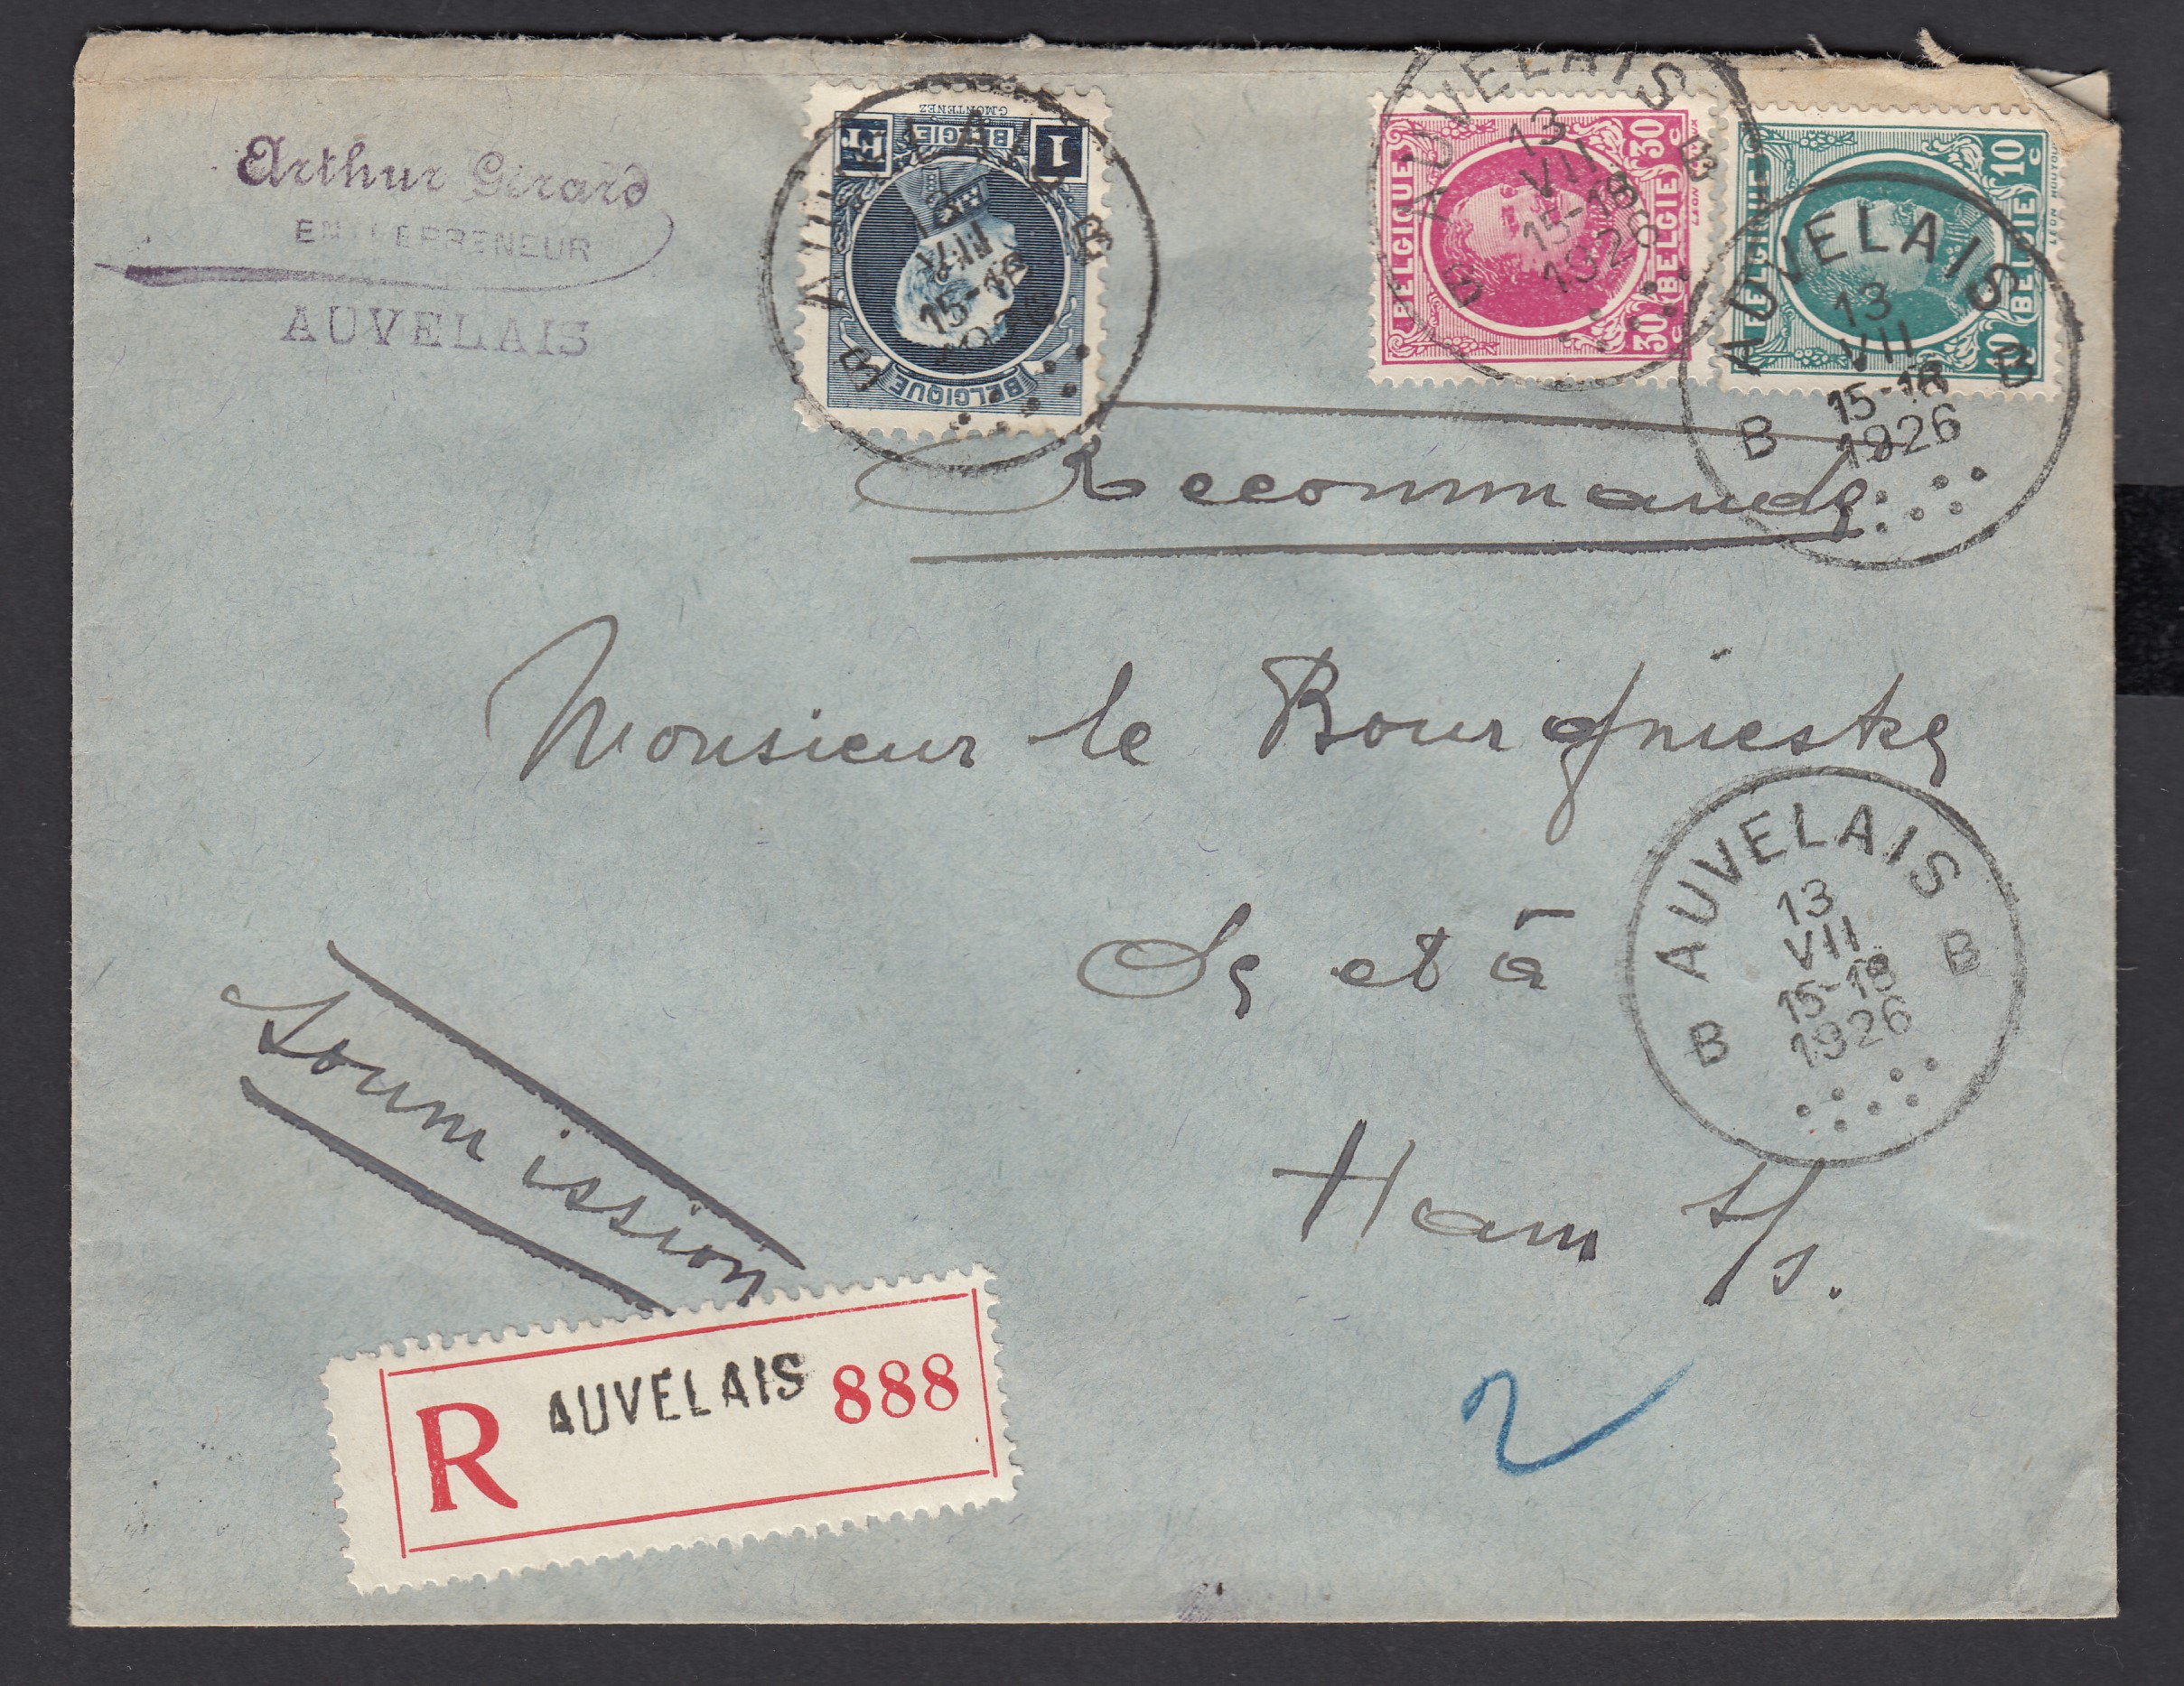 Arthur Girard
ENTREPRENEUR
AUVELAIS
1 Fr
BELGIE
G.MONTENEZ
BELGIQUE
AUVELAIS
B B
15-18
BELGIQUE 30 c
BELGIE 30 c
AUVELAIS
B B
13
VII
15-18
1926
BELGIQUE 10 c
BELGIE 10 c
LEON HOUYOUX
AUVELAIS
B B
13
VII
15-18
1926
Recommandé
Monsieur le Bourgmestre
De et à
Ham s/s.
AUVELAIS
B B
13
VII
15-18
1926
Soumission
R AUVELAIS 888
2